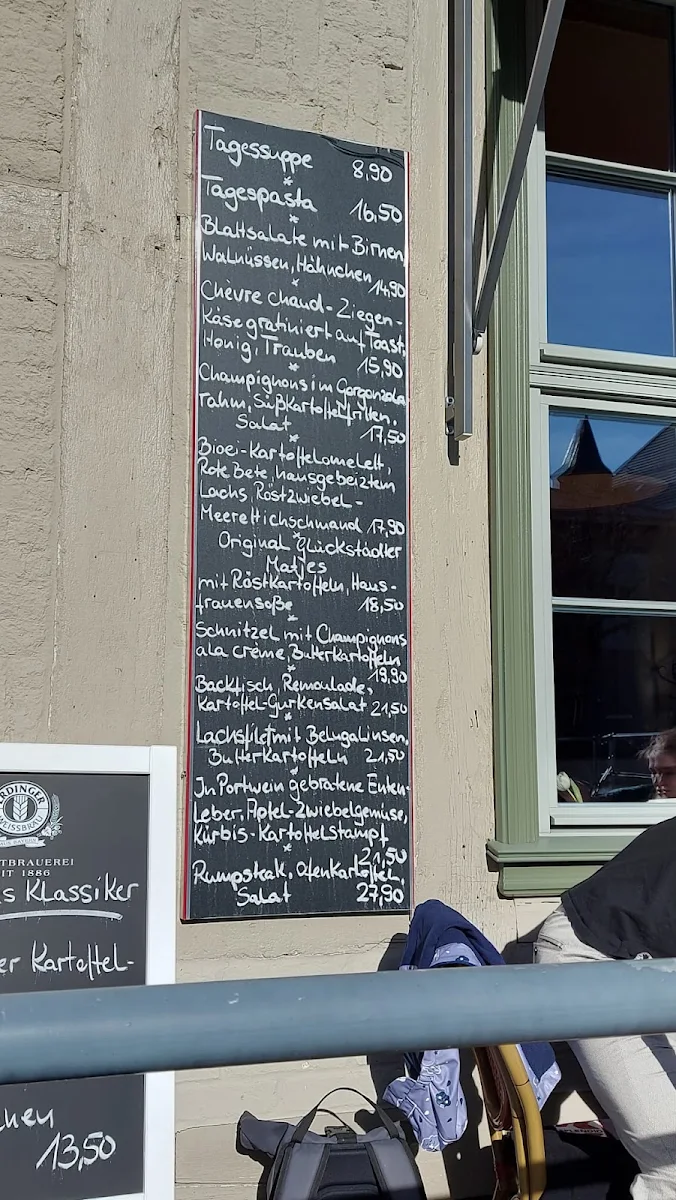 Tagessuppe 8,90
*
Tagespasta 16,50
*
Blattsalate mit Birnen,
Walnüssen, Hähnchen 14,90
*
Chèvre chaud - Ziegen-
Käse gratiniert auf Toast,
Honig, Trauben 15,90
*
Champignons im Gorgonzola
rahm, Süßkartoffelfritten,
Salat 17,50
*
Bioei-Kartoffelomelett,
Rote Bete, hausgebeiztem
Lachs, Röstzwiebel-
Meerettichschmand 17,90
*
Original Glückstädter
Matjes
mit Röstkartoffeln, Haus-
frauensoße 18,50
*
Schnitzel mit Champignons
ala crème, Butterkartoffeln
19,90
*
Backfisch, Remoulade,
Kartoffel-Gurkensalat 21,50
*
Lachsfilet mit Belugalinsen,
Butterkartoffeln 21,50
*
In Portwein gebratene Enten-
Leber, Apfel-Zwiebelgemüse,
Kürbis-Kartoffelstampf
21,50
*
Rumpsteak, Ofenkartoffel,
Salat 27,90
ERDINGER
WEISSBRÄU
TBRAUEREI
IT 1886
s Klassiker
er Kartoffel-
chen
13,50